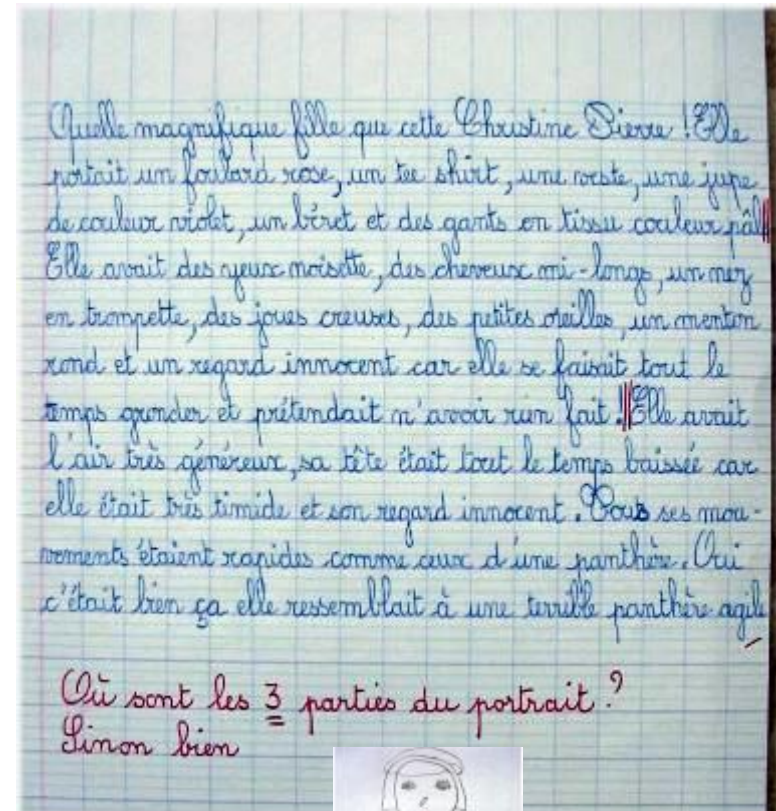 Quelle magnifique fille que cette Christine Pierre ! Elle
portait un foulard rose, un tee shirt, une veste, une jupe
de couleur violet, un béret et des gants en tissu couleur pâle
Elle avait des yeux noisette, des cheveux mi-longs, un nez
en trompette, des joues creuses, des petites oreilles, un menton
rond et un regard innocent car elle se faisait tout le
temps gronder et prétendait n'avoir rien fait ! Elle avait
l'air très généreux, sa tête était tout le temps baissée car
elle était très timide et son regard innocent. Tous ses mou-
vements étaient rapides comme ceux d'une panthère. Oui
c'était bien ça elle ressemblait à une terrible panthère agile
Où sont les 3 parties du portrait ?
Sinon bien